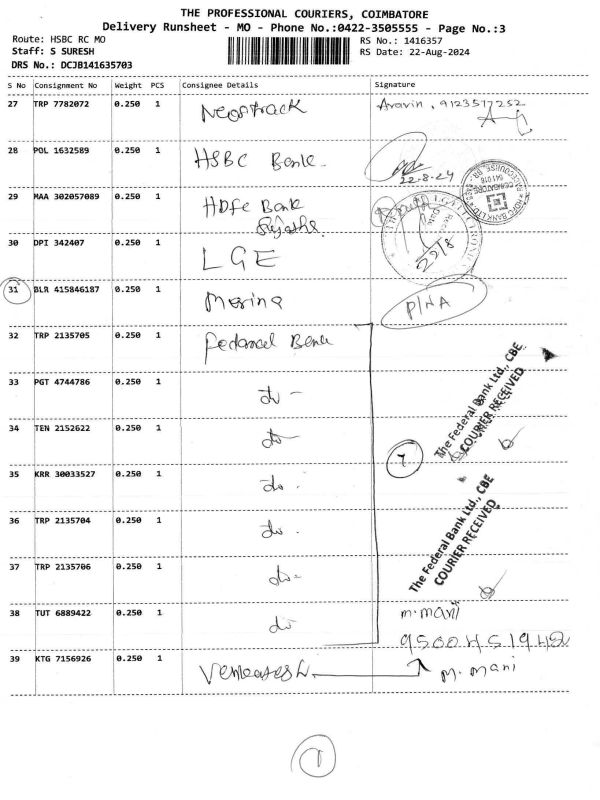 THE PROFESSIONAL COURIERS, COIMBATORE
Delivery Runsheet - MO - Phone No.:0422-3505555 - Page No.:3
Route: HSBC RC MO
RS No.: 1416357
Staff: S SURESH
RS Date: 22-Aug-2024
DRS No.: DCJB141635703
S No Consignment No Weight PCS Consignee Details Signature
27 TRP 7782072 0.250 1 Neostrack Aravin, 9123517252
28 POL 1632589 0.250 1 HSBC Bank. 22-8-24
29 MAA 302057089 0.250 1 HDFC Bank
HDFC BANK LTD
COIMBATORE
641 018
30 DPI 342407 0.250 1 LGE 22/8
31 BLR 415846187 0.250 1 Marina P/NA
32 TRP 2135705 0.250 1 Fedaral Bank
33 PGT 4744786 0.250 1 do -
The Federal Bank Ltd., CBE
COURIER RECEIVED
34 TEN 2152622 0.250 1 do - 7
35 KRR 30033527 0.250 1 do.
36 TRP 2135704 0.250 1 do.
The Federal Bank Ltd., CBE
COURIER RECEIVED
37 TRP 2135706 0.250 1 do-
38 TUT 6889422 0.250 1 do M. Mani
9500451942
39 KTG 7156926 0.250 1 M. Mani
1